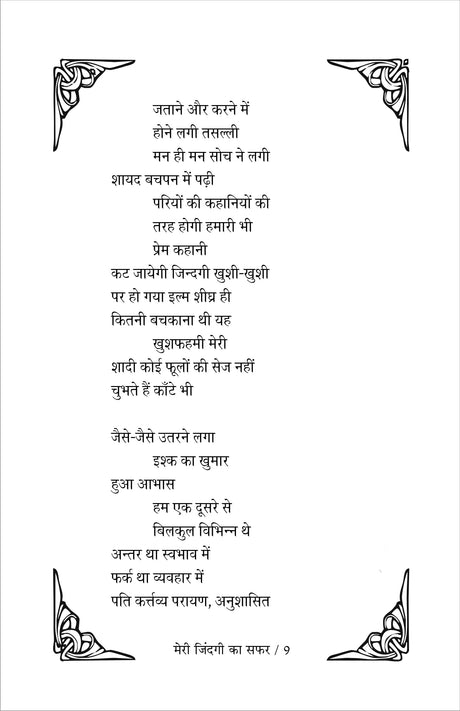 जताने और करने में
होने लगी तसल्ली
मन ही मन सोच ने लगी
शायद बचपन में पढ़ी
परियों की कहानियों की
तरह होगी हमारी भी
प्रेम कहानी
कट जायेगी जिन्दगी खुशी-खुशी
पर हो गया इल्म शीघ्र ही
कितनी बचकाना थी यह
खुशफहमी मेरी
शादी कोई फूलों की सेज नहीं
चुभते हैं काँटे भी
जैसे-जैसे उतरने लगा
इश्क का खुमार
हुआ आभास
हम एक दूसरे से
बिलकुल विभिन्न थे
अन्तर था स्वभाव में
फर्क था व्यवहार में
पति कर्त्तव्य परायण, अनुशासित
मेरी जिंदगी का सफर / 9